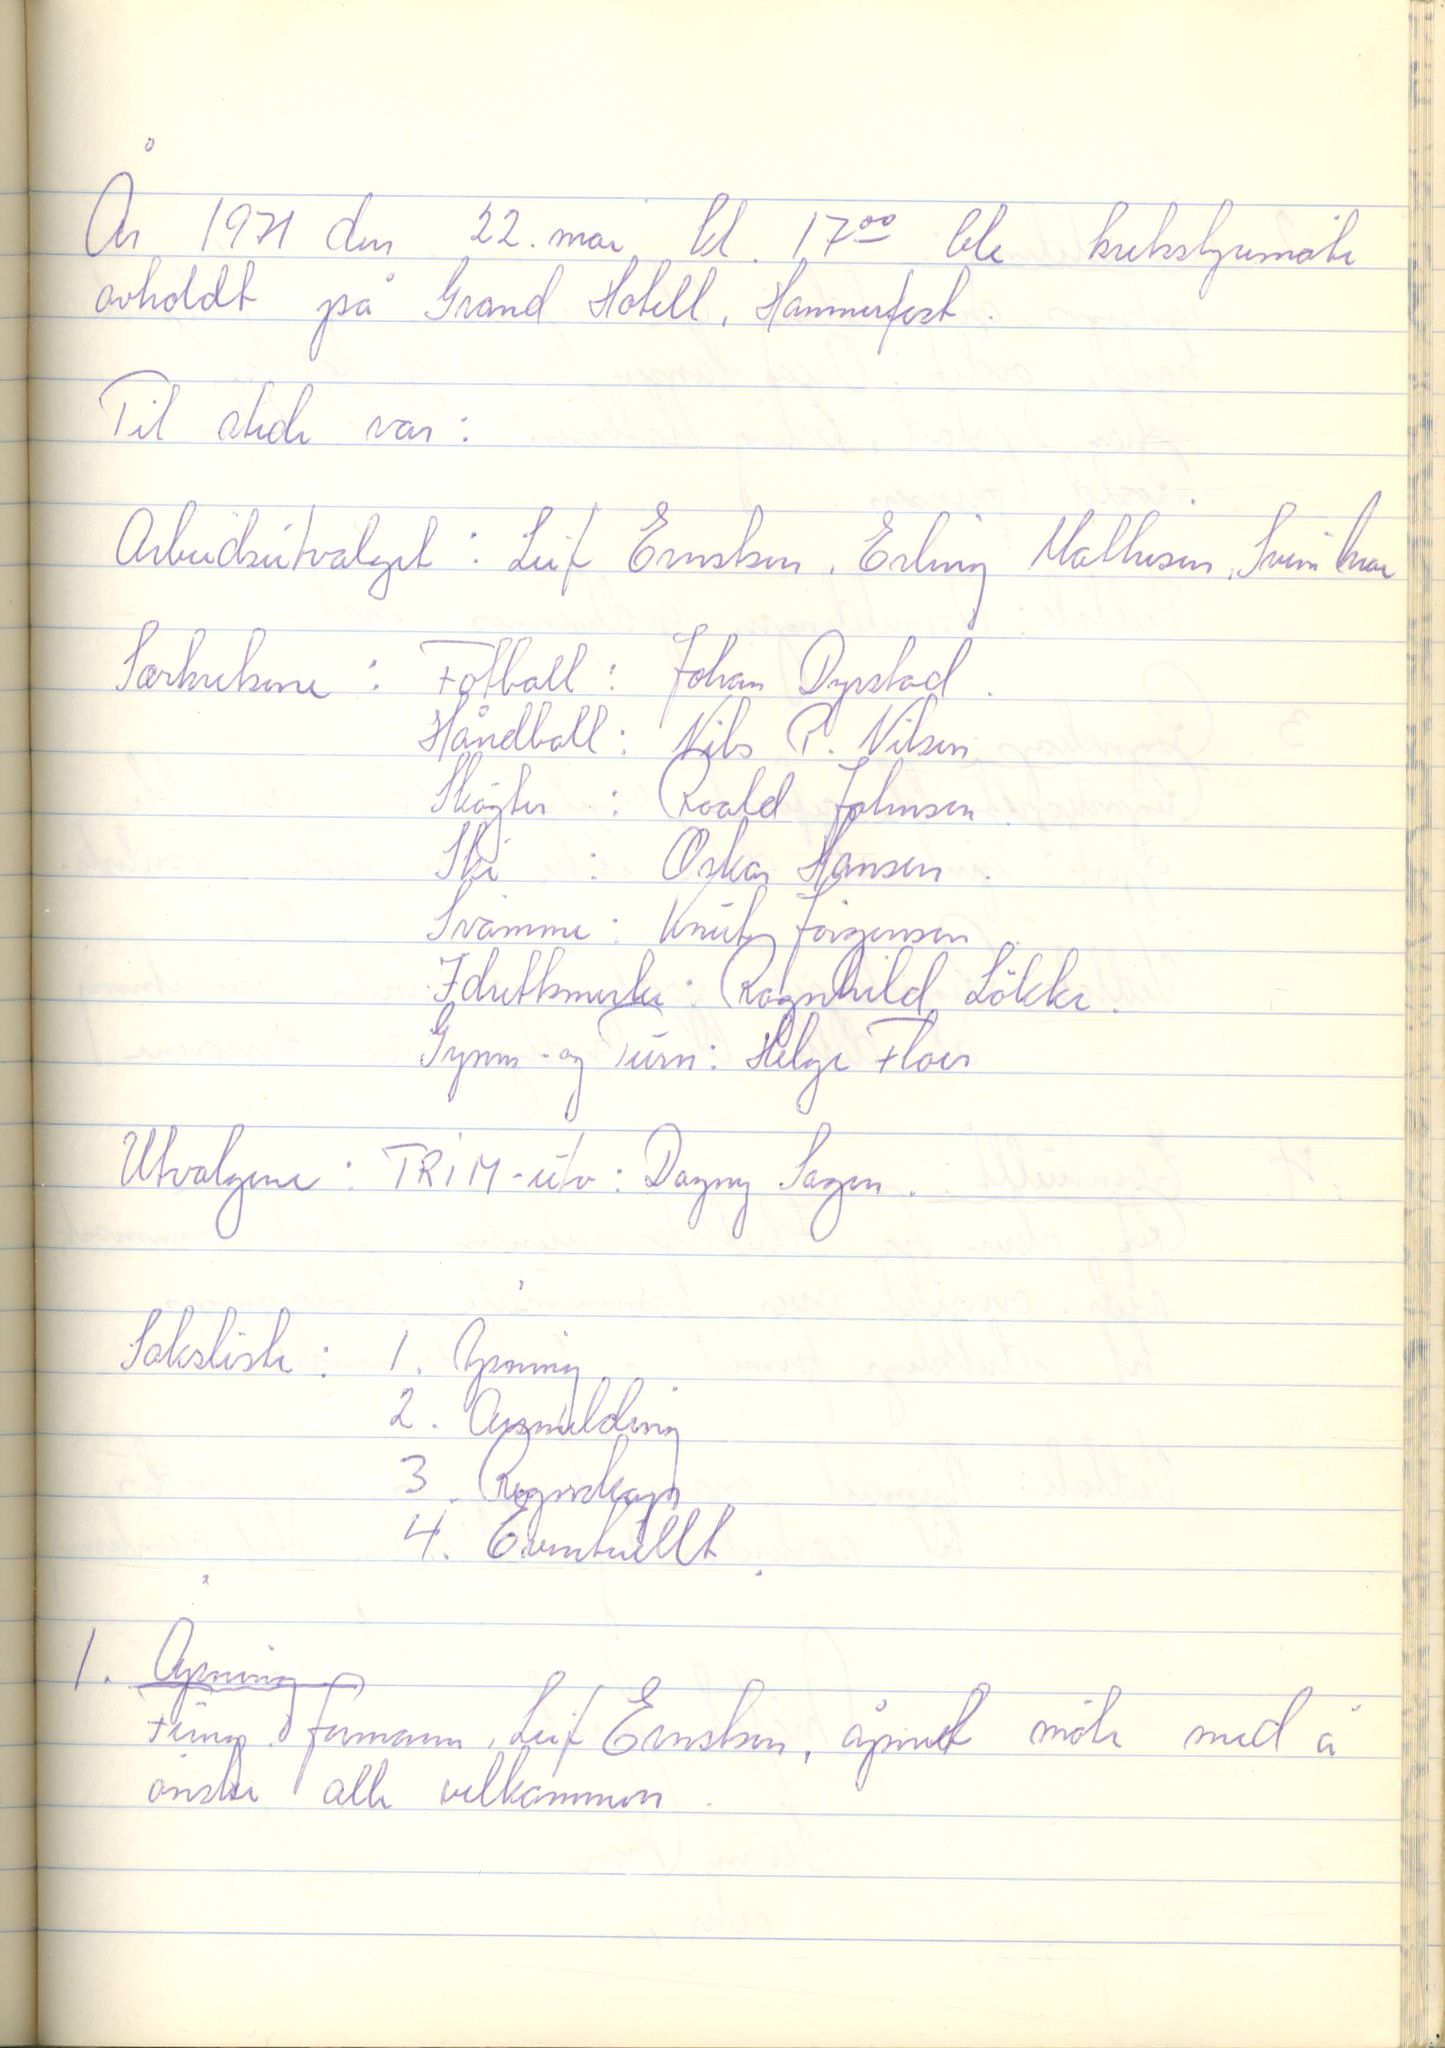 År 1971 den 22. mai kl. 17⁰⁰ ble kretsstyremøte
avholdt på Grand Hotell, Hammerfest.
Til stede var:
Arbeidsutvalget: Leif Ernstsen, Erling Mathisen, Svein
Særkretsene: Fotball: Johan Dyrstad.
Håndball: Nils P. Nilsen.
Skøyter: Roald Johnsen.
Ski: Oskar Hansen.
Svømme: Knut Jørgensen.
Idrettsmerke: Ragnhild Løkke.
Gymn- og Turn: Helge Floer
Utvalgene: TRIM-utv: Dagny Sagen.
Saksliste: 1. Åpning
2. Årsmelding
3. Regnskap
4. Eventuellt.
1. Åpning
Fung. formann, Leif Ernstsen, åpnet møte med å
ønske alle velkommen.